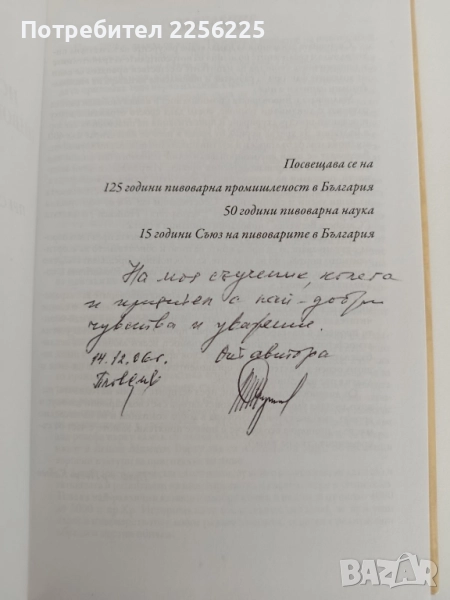 Потребител 2256225
Посвещава се на
125 години пивоварна промишленост в България
50 години пивоварна наука
15 години Съюз на пивоварите в България
На моя съученик, колега
и приятел с най-добри
чувства и уважение.
14.12.06г. От автора
Пловдив
bazar.bg